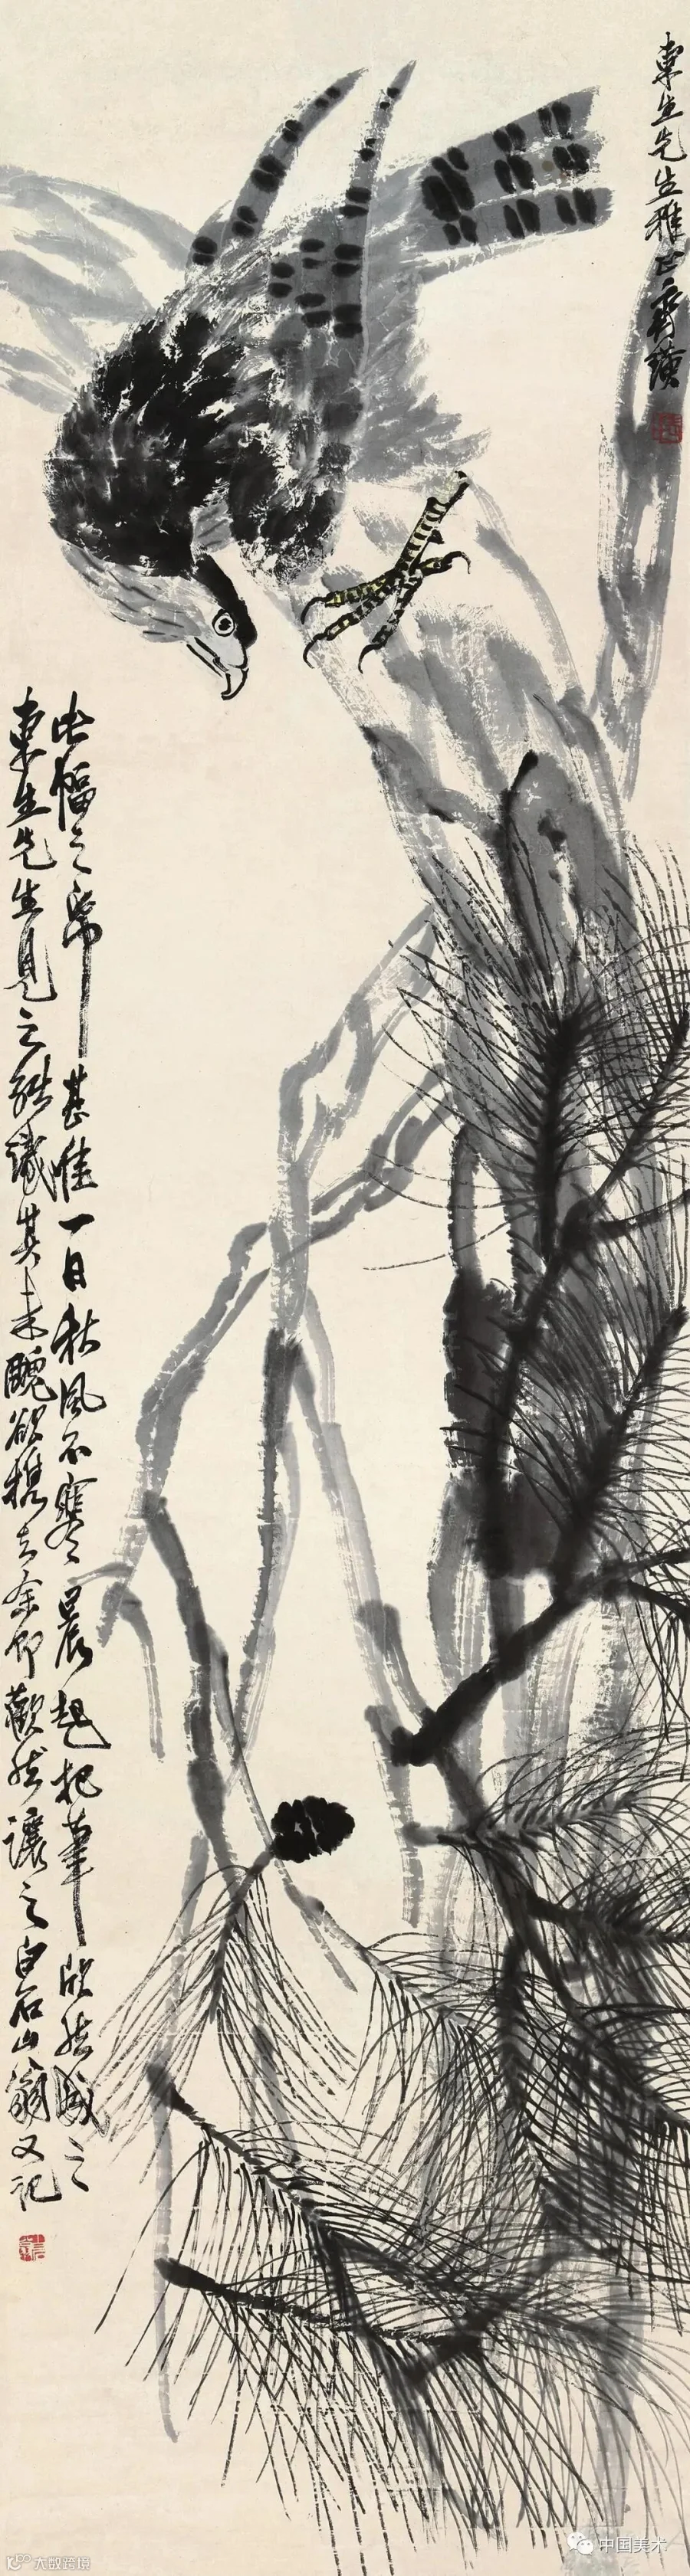 東生先生雅正齊璜
此幅之紙甚佳一日秋風不寒晨起把筆欣然成之
東生先生見之能識其未醜欲攜去余即歡然讓之白石山翁又記
中国美术
大数跨境